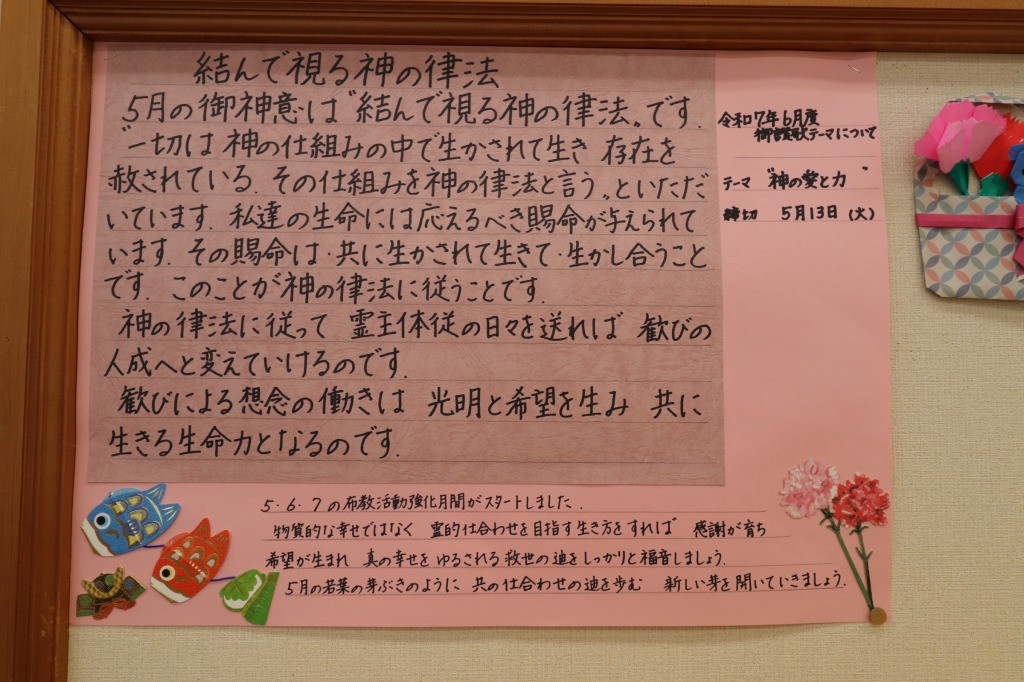 結んで視る神の律法
5月の御神意は〝結んで視る神の律法〟です.
〝一切は 神の仕組みの中で生かされて生き 存在を
赦されている. その仕組みを神の律法と言う〟といただ
いています. 私達の生命には応えるべき賜命が与えられて
います. その賜命は・共に生かされて生きて・生かし合うこと
です. このことが神の律法に従うことです.
神の律法に従って 霊主体従の日々を送れば 歓びの
人成へと変えていけるのです.
歓びによる想念の働きは 光明と希望を生み 共に
生きる生命力となるのです.
5・6・7の布教活動強化月間がスタートしました.
物質的な幸せではなく 霊的仕合わせを目指す生き方をすれば 感謝が育ち
希望が生まれ 真の幸せを ゆるされる救世の迪をしっかりと福音しましょう.
5月の若葉の芽ぶきのように 共の仕合わせの迪を歩む 新しい芽を開いていきましょう.
令和7年6月度
御讃歌テーマについて
テーマ 〝神の愛と力〟
締切 5月13日(火)